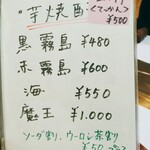 ・芋焼酎
¥500
黒霧島 ¥480
赤霧島 ¥600
海 ¥550
魔王 ¥1.000
ソーダ割り、ウーロン茶割り
¥50